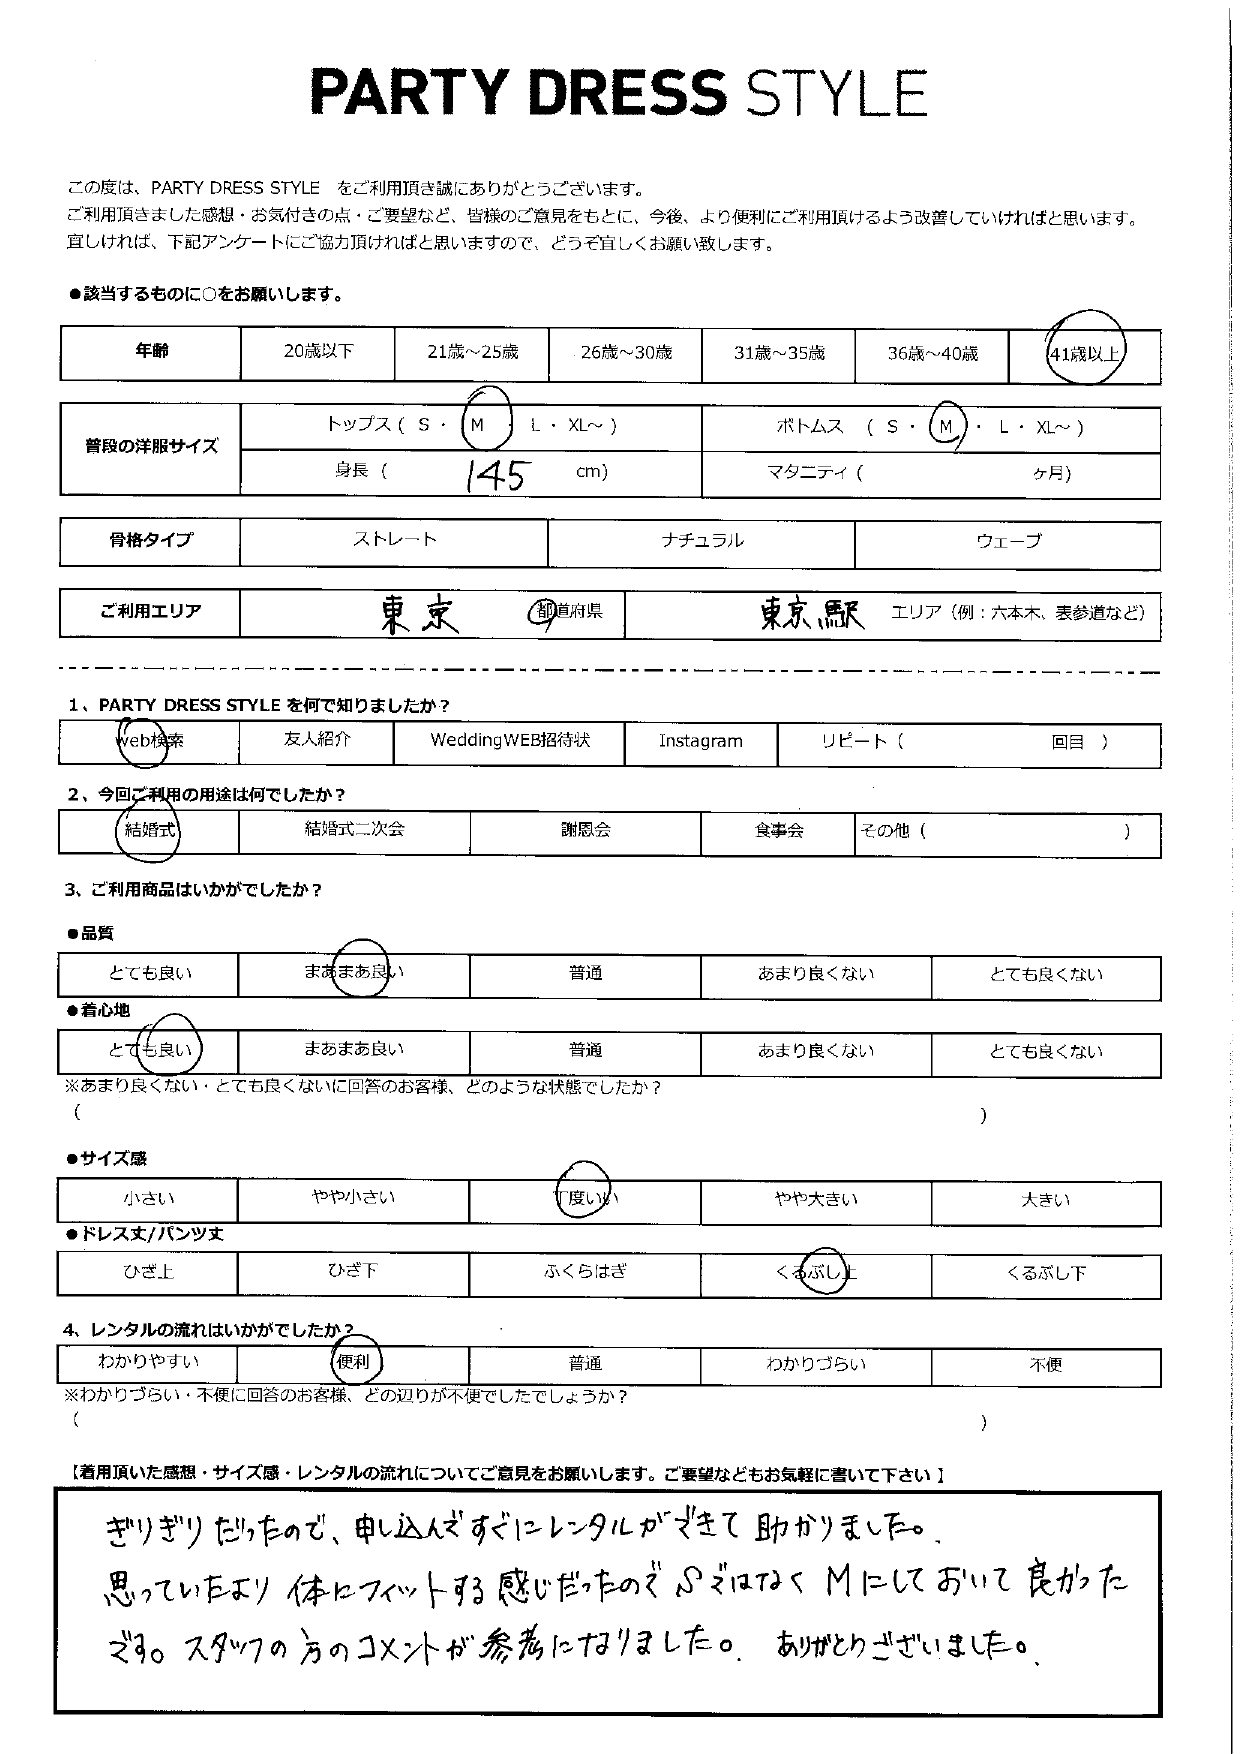 PARTY DRESS STYLE
この度は、PARTY DRESS STYLE をご利用頂き誠にありがとうございます。
ご利用頂きました感想・お気付きの点・ご要望など、皆様のご意見をもとに、今後、より便利にご利用頂けるよう改善していければと思います。
宜しければ、下記アンケートにご協力頂ければと思いますので、どうぞ宜しくお願い致します。
●該当するものに○をお願いします。
年齢 20歳以下 21歳～25歳 26歳～30歳 31歳～35歳 36歳～40歳 41歳以上
普段の洋服サイズ トップス ( S ・ M ・ L ・ XL～ ) ボトムス ( S ・ M ・ L ・ XL～ )
身長 ( 145 cm) マタニティ ( ヶ月)
骨格タイプ ストレート ナチュラル ウェーブ
ご利用エリア 東京 都道府県 東京駅 エリア（例：六本木、表参道など）
1、PARTY DRESS STYLE を何で知りましたか？
web検索 友人紹介 WeddingWEB招待状 Instagram リピート ( 回目 )
2、今回ご利用の用途は何でしたか？
結婚式 結婚式二次会 謝恩会 食事会 その他 ( )
3、ご利用商品はいかがでしたか？
●品質
とても良い まあまあ良い 普通 あまり良くない とても良くない
●着心地
とても良い まあまあ良い 普通 あまり良くない とても良くない
※あまり良くない・とても良くないに回答のお客様、どのような状態でしたか？
( )
●サイズ感
小さい やや小さい 丁度いい やや大きい 大きい
●ドレス丈/パンツ丈
ひざ上 ひざ下 ふくらはぎ くるぶし上 くるぶし下
4、レンタルの流れはいかがでしたか？
わかりやすい 便利 普通 わかりづらい 不便
※わかりづらい・不便に回答のお客様、どの辺りが不便でしたでしょうか？
( )
【着用頂いた感想・サイズ感・レンタルの流れについてご意見をお願いします。ご要望などもお気軽に書いて下さい】
ぎりぎりだったので、申し込んですぐにレンタルができて助かりました。
思っていたより体にフィットする感じだったのでSではなくMにしておいて良かった
です。スタッフの方のコメントが参考になりました。ありがとうございました。